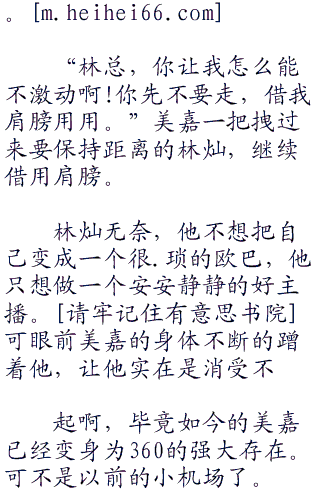 。[m.heihei66.com]
“林总，你让我怎么能
不激动啊!你先不要走，借我
肩膀用用。”美嘉一把拽过
来要保持距离的林灿，继续
借用肩膀。
林灿无奈，他不想把自
己变成一个很.琐的欧巴，他
只想做一个安安静静的好主
播。[请牢记住有意思书院]
可眼前美嘉的身体不断的蹭
着他，让他实在是消受不
起啊，毕竟如今的美嘉
已经变身为360的强大存在。
可不是以前的小机场了。